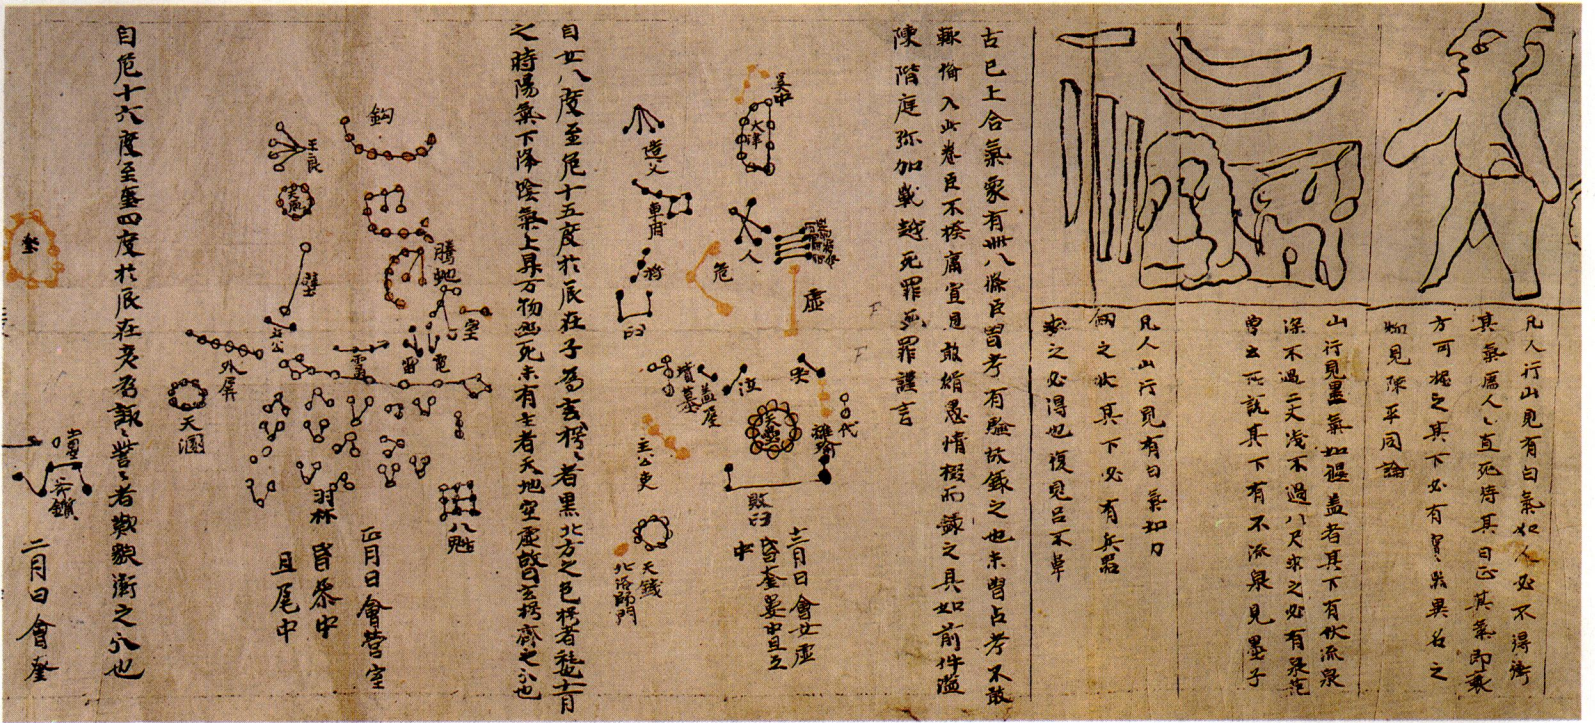 凡人行山見有白氣如人必不得衝
其氣屬人〻直死待其日正其氣即衰
方可掘之其下必有寶器異名之
物見陳平同論
山行見墨氣如偃蓋者其下有伏流泉
深不過二丈淺不過八尺求之必有泉范
曾云所説其下有不流泉見墨子
凡人山行見有白氣如刀
之狀其下必有兵器
求之必得也復見呂不韋
古已上合氣象有卌八條臣曾考有驗故錄之也未曾占考不敢
輒備入此卷臣不揆庸冥見敢緝愚情掇而錄之具如前件濫
陳階庭弥加戰越死罪死罪謹言
天津
人
虛
危
造父
車府
杵
臼
哭
泣
蓋屋
墳墓
代
離瑜
天壘
敗臼
主公吏
天錢
北落師門
十二月日會女虛
昏奎婁中旦互
中
自女八度至危十五度於辰在子為玄枵〻者黑北方之色枵者秏也十一月
之時陽氣下降陰氣上昇万物幽死未有生者天地空虛故曰玄枵齊之分也
鈎
王良
天廄
騰虵
室
壁
土公
電
雷
外屏
天溷
羽林
八魁
正月日會營室
昏参中
旦尾中
自危十六度至奎四度於辰在亥為諏訾〻者歎貌衛之分也
奎
鈇鑕
二月日會奎